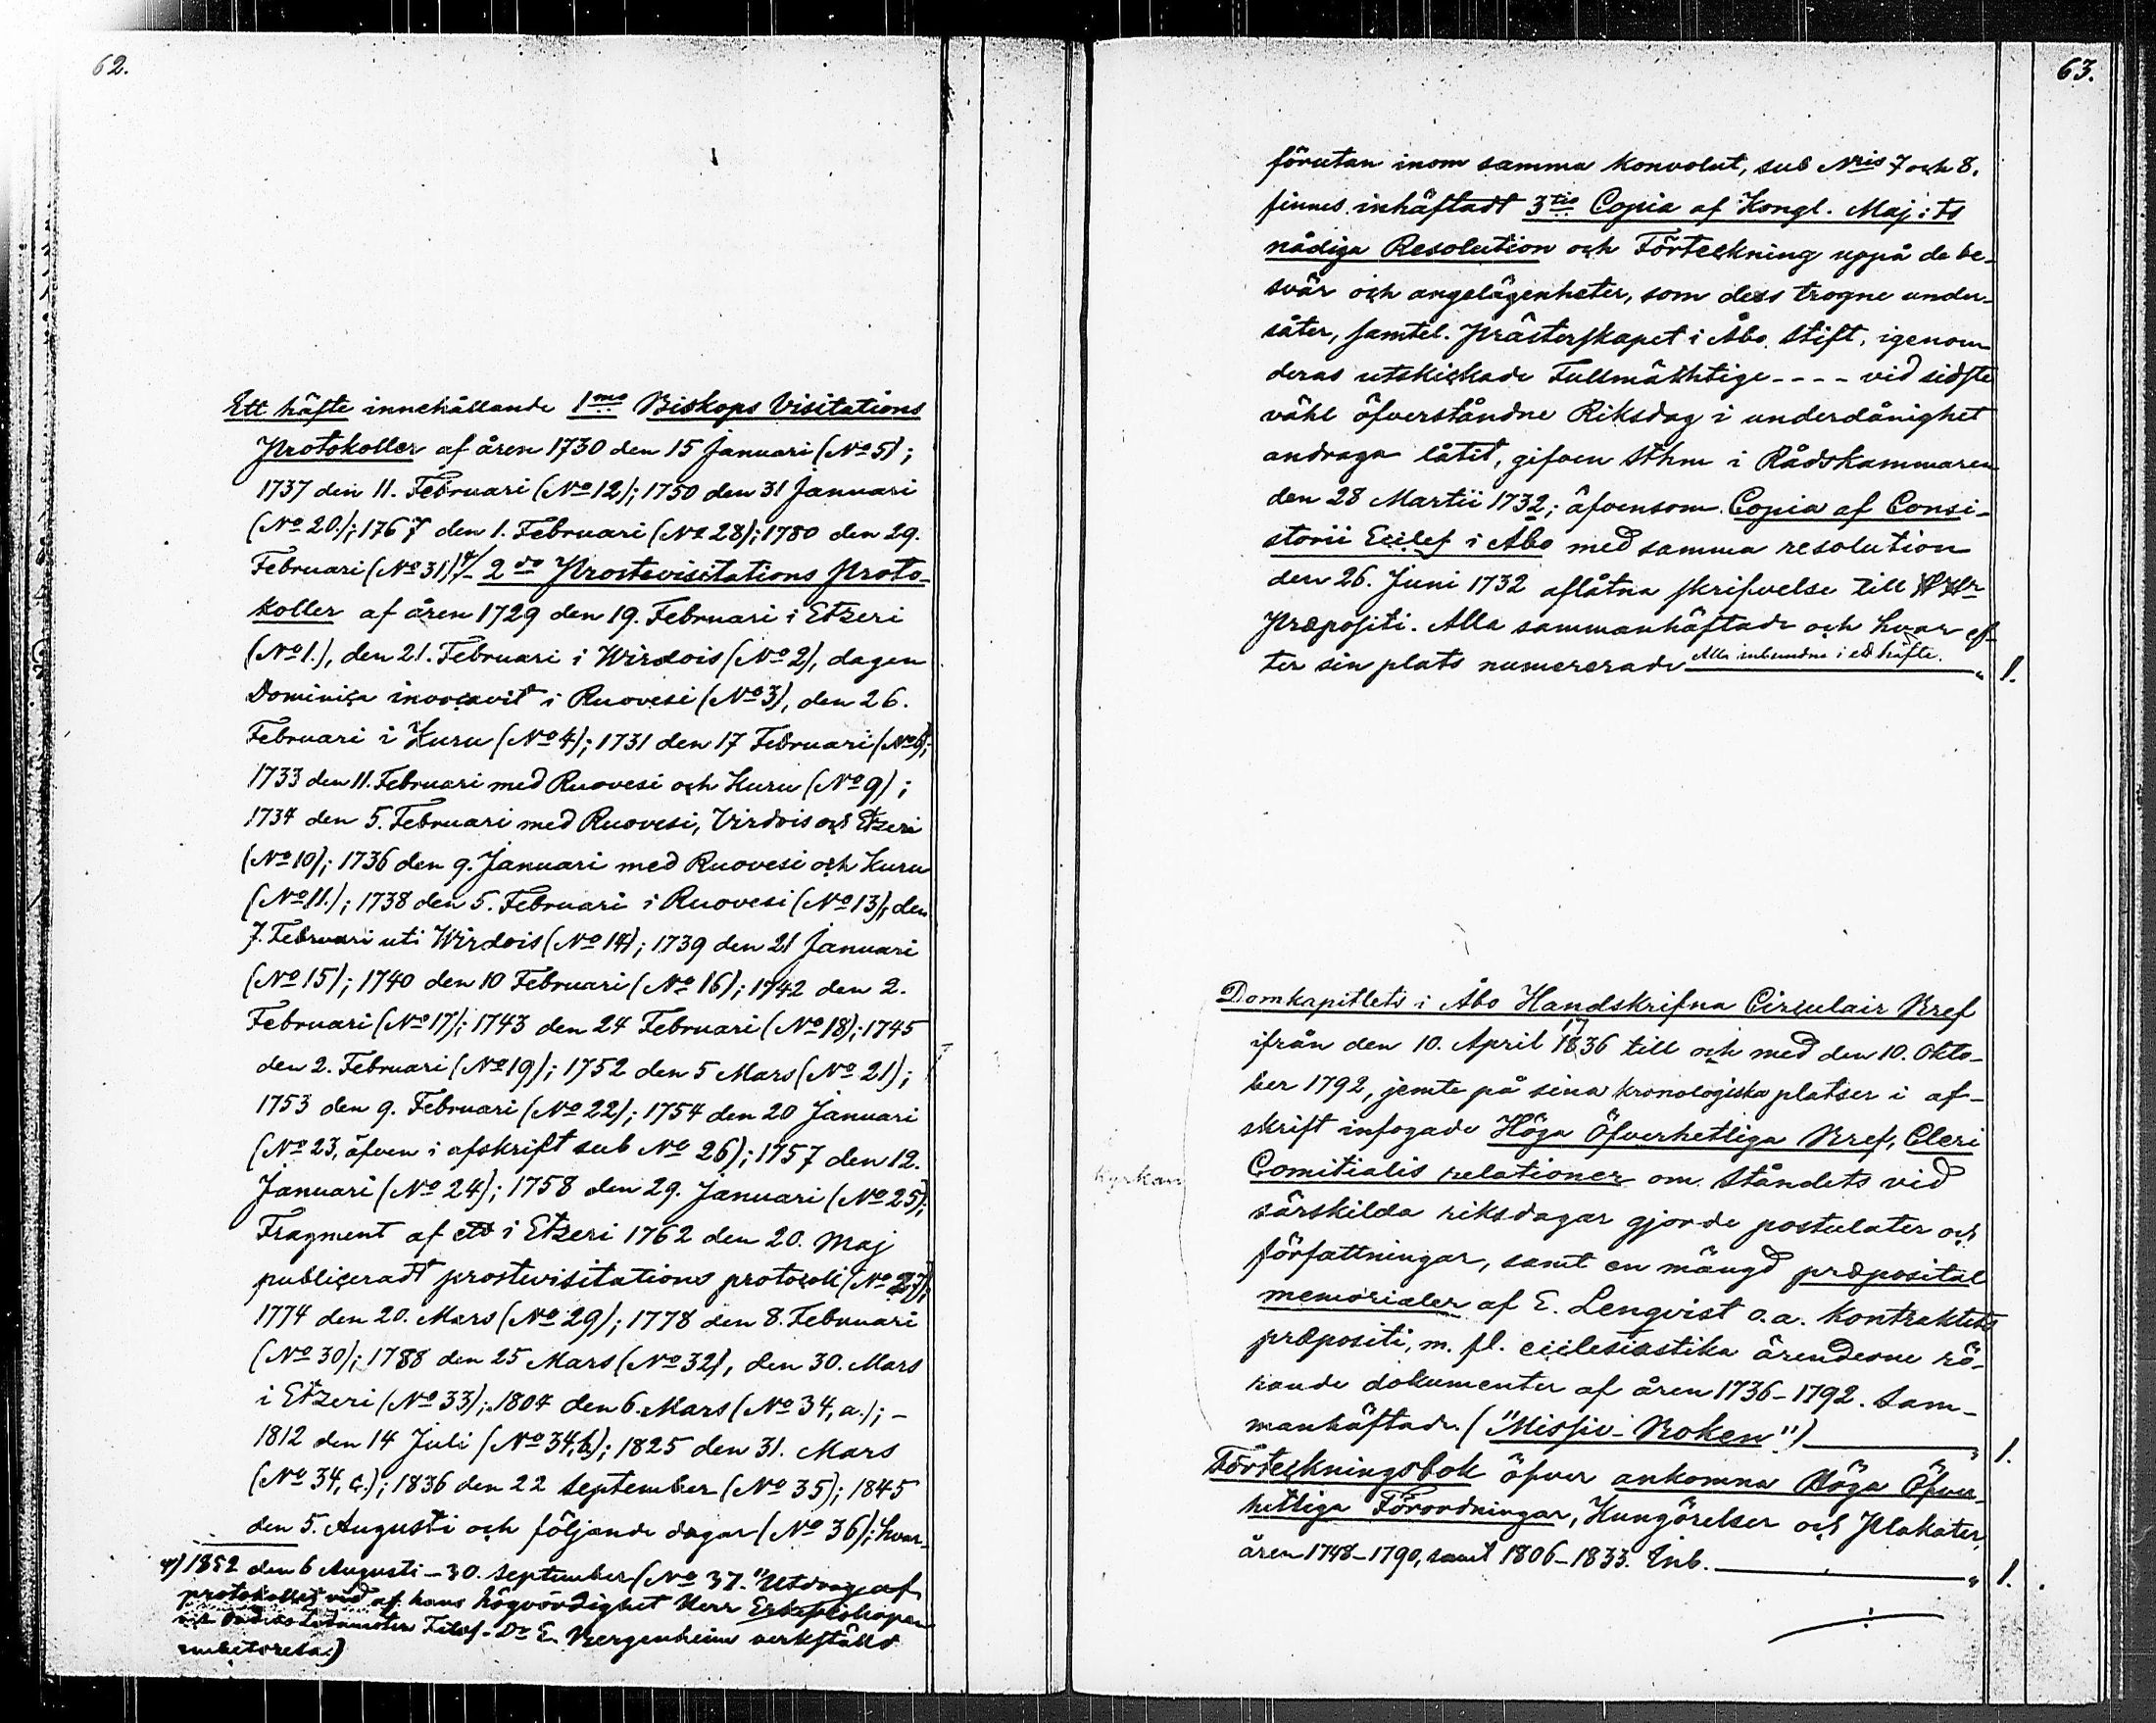 62.
Ett häfte innehållande 1mo Biskops Visitations
Protokoller af åren 1730 den 15 Januari (No 5);
1737 den 11. Februari (No 12); 1750 den 31 Januari
(No 20.); 1767 den 1. Februari (No 28); 1780 den 29.
Februari (No 31) - 2do Prostevisitations Proto-
koller af åren 1729 den 19. Februari i Etzeri
(No 1.), den 21. Februari i Wirdois (No 2), dagen
Dominica invocavit i Ruovesi (No 3), den 26.
Februari i Kuru (No 4); 1731 den 17 Februari (No 6);
1733 den 11. Februari med Ruovesi och Kuru (No 9);
1734 den 5. Februari med Ruovesi, Virdois och Etzeri
(No 10); 1736 den 9. Januari med Ruovesi och Kuru
(No 11.); 1738 den 5. Februari i Ruovesi (No 13), den
7. Februari uti Wirdois (No 14); 1739 den 21 Januari
(No 15); 1740 den 10 Februari (No 16); 1742 den 2.
Februari (No 17); 1743 den 24 Februari (No 18); 1745
den 2. Februari (No 19); 1752 den 5 Mars (No 21);
1753 den 9. Februari (No 22); 1754 den 20 Januari
(No 23, äfven i afskrift sub No 26); 1757 den 12.
Januari (No 24); 1758 den 29. Januari (No 25);
Fragment af ett i Etzeri 1762 den 20. Maj
publiceradt prostevisitations protocoll (No 27);
1774 den 20. Mars (No 29); 1778 den 8. Februari
(No 30); 1788 den 25 Mars (No 32), den 30. Mars
i Etzeri (No 33); 1804 den 6. Mars (No 34, a.); -
1812 den 14 Juli (No 34, b.); 1825 den 31. Mars
(No 34, c.); 1836 den 22 September (No 35); 1845
den 5. Augusti och följande dagar (No 36); hvar-
1852 den 6 Augusti - 30. September (No 37. "Utdrag af
protokollet vid af hans Högvördighet Herr Erkebiskopen
Filos. Dr E. Bergenheim verkställd
embetsresa.)
63.
förutan inom samma konvolut, sub Nris 7 och 8.
finnes inhäftadt 3tio Copia af Kongl. Maj:ts
nådiga Resolution och Förteckning uppå de be-
svär och angelägenheter, som dess trogne under-
såter, samtel. Prästerskapet i Åbo Stift, igenom
deras utskickade Fullmäkhtige - - - - vid sidste
vähl öfverståndne Riksdag i underdånighet
andraga låtit, gifven Sthm i Rådskammaren
den 28 Martii 1732; äfvensom Copia af Consi-
storii Eccles i Åbo med samma resolution
den 26. Juni 1732 aflåtna skrifvelse till HHr
Præpositi. Alla sammanhäftade och hvar ef-
ter sin plats numererade Alla inbundna i ett häfte. " 1.
Domkapitlets i Åbo Handskrifna Circulair Bref
17
ifrån den 10. April 1836 till och med den 10. Okto-
ber 1792, jemte på sina kronologiska platser i af-
skrift infogade Höga Öfverhetliga Bref, Cleri
Kyrkan
Comitialis relationer om Ståndets vid
särskilda riksdagar gjorde postulater och
författningar, samt en mängd præposital
memorialer af E. Lenqvist o.a. Kontraktets
præpositi, m. fl. ecclesiastika ärenderne rö-
rande dokumenter af åren 1736-1792. Sam-
manhäftade. ("Missiv-Boken") " 1.
Förteckningsbok öfver ankomna Höga Öfver-
hetliga Förordningar, Kungörelser och Plakater,
åren 1748-1790, samt 1806-1833. Inb. " 1.